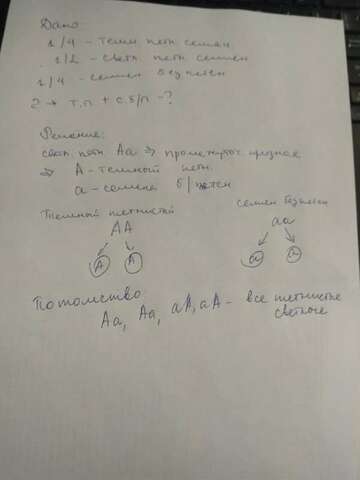 Дано:
1/4 - темн пятн семян.
1/2 - светл пятн семян
1/4 - семян без пятен
2 → т.п + с.б/п - ?
Решение:
светл пятн Aa ⇒ промежуточ признак
⇒ A - темный пятн.
a - семена б/пятен
Темный пятнистый
AA
A A
семян без пятен
aa
a a
Потомство
Aa, Aa, aA, aA - все пятнистые
светлые